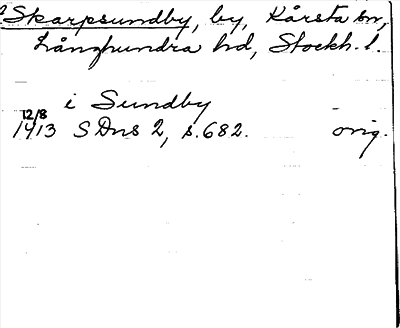 Skarpsundby, by, Kårsta sn,
Långhundra hd, Stockh. l.
i Sundby
12/8
1413 SDns 2, s. 682. orig.